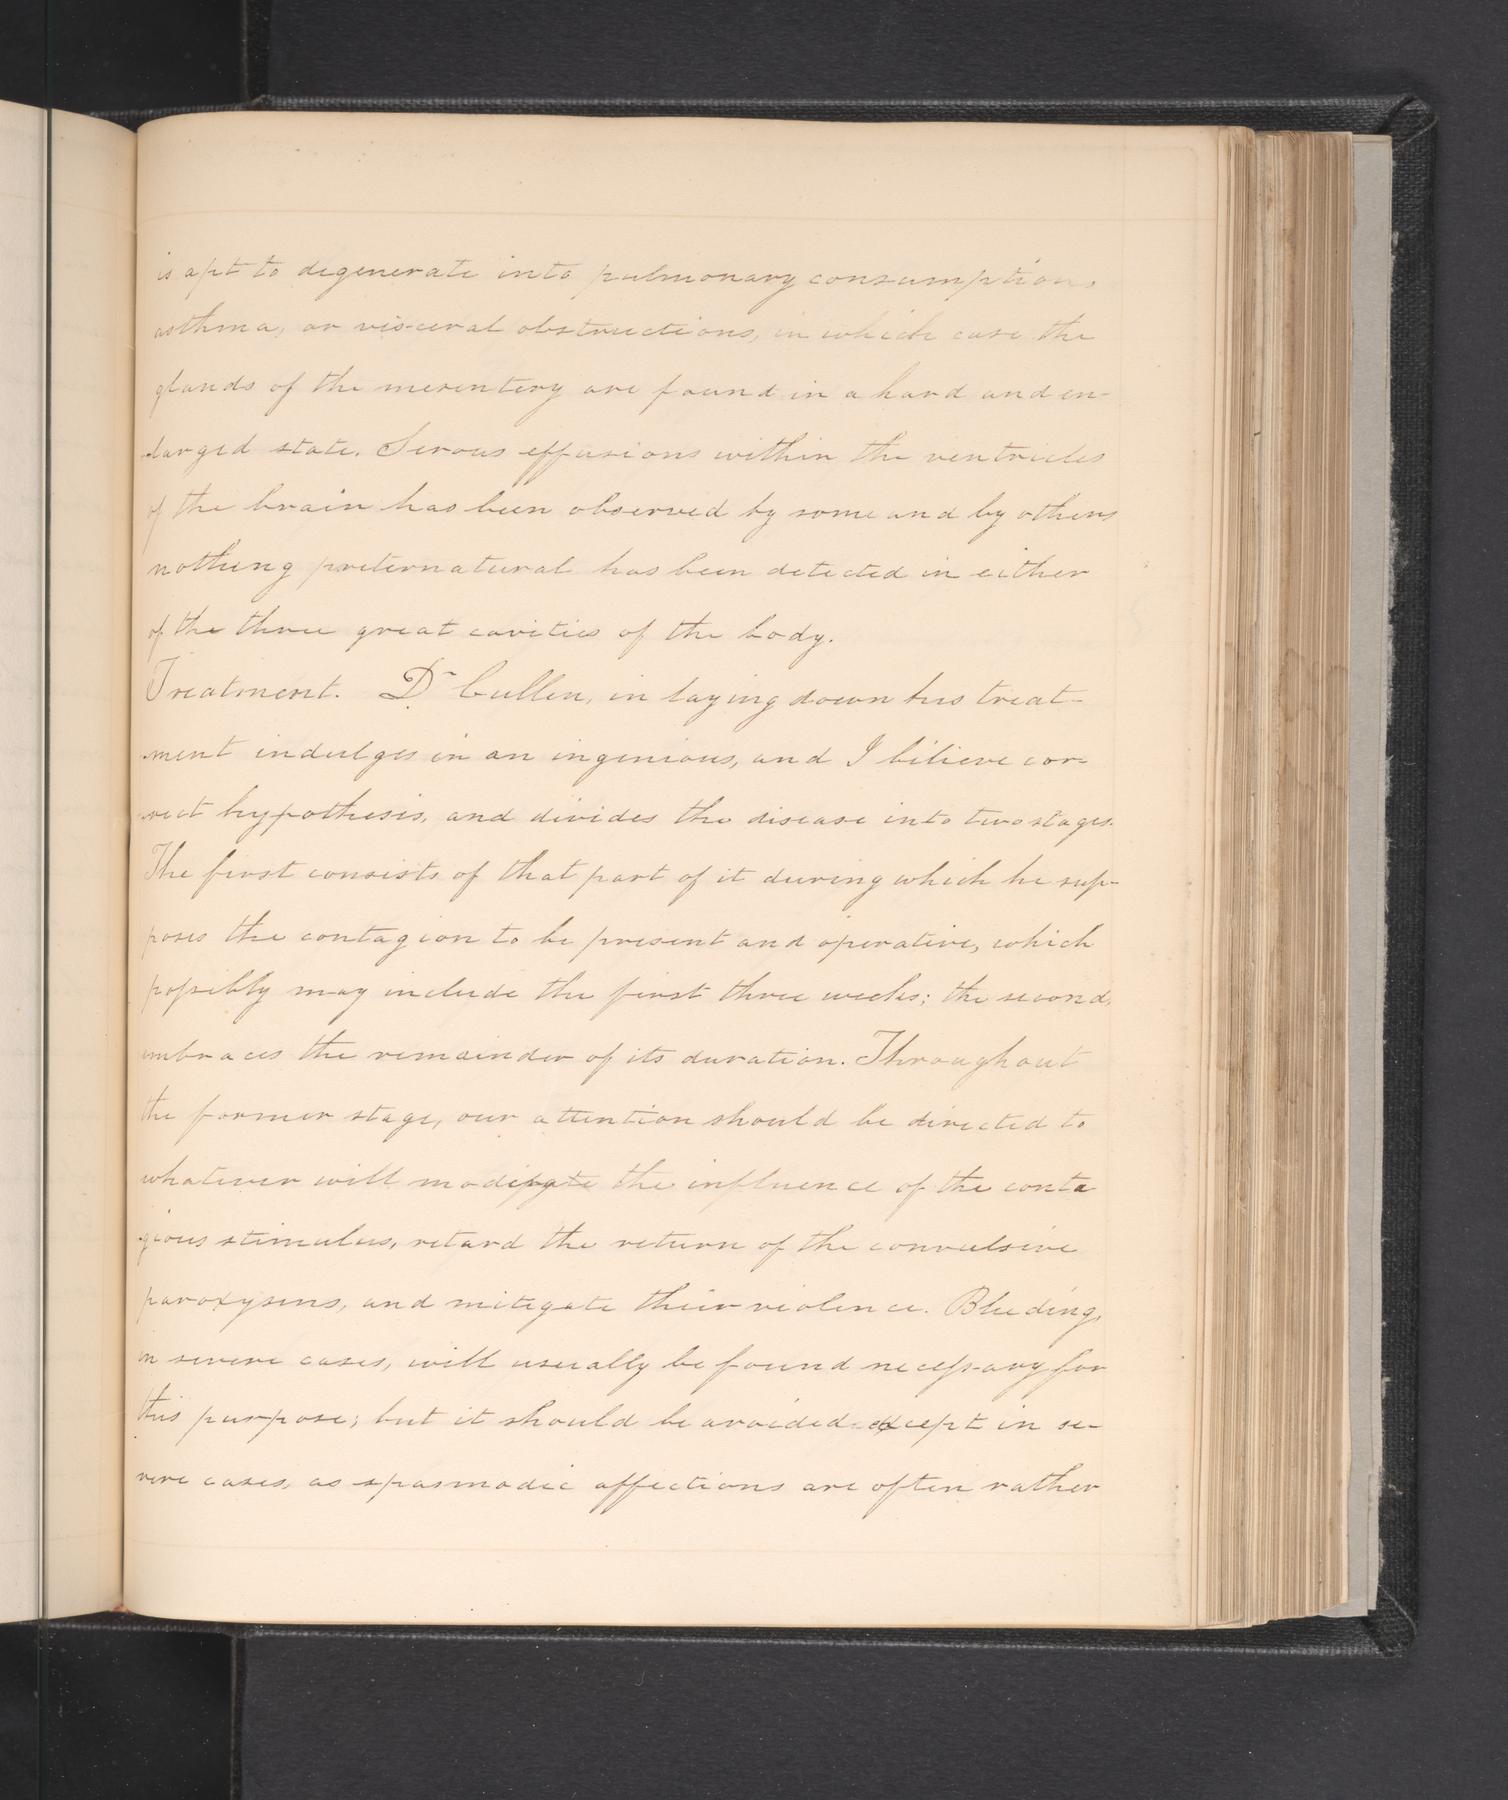 is apt to degenerate into pulmonary consumption,
asthma, or visceral obstructions, in which case the
glands of the mesentery are found in a hard and en-
-larged state. Serous effusions within the ventricles
of the brain has been observed by some and by others
nothing preternatural has been detected in either
of the three great cavities of the body.
Treatment. Dr Cullen, in laying down his treat-
-ment indulges in an ingenious, and I believe cor-
-rect hypothesis, and divides the disease into two stages.
The first consists of that part of it during which he sup-
poses the contagion to be present and operative, which
possibly may include the first three weeks; the second,
embraces the remainder of its duration. Throughout
the former stage, our attention should be directed to
whatever will the influence of the conta
-gious stimulus, retard the return of the convulsive
paroxysms, and mitigate their violence. Bleeding,
in severe cases, will usually be found necessary for
this purpose; but it should be avoided except in se-
vere cases, as spasmodic affections are often rather